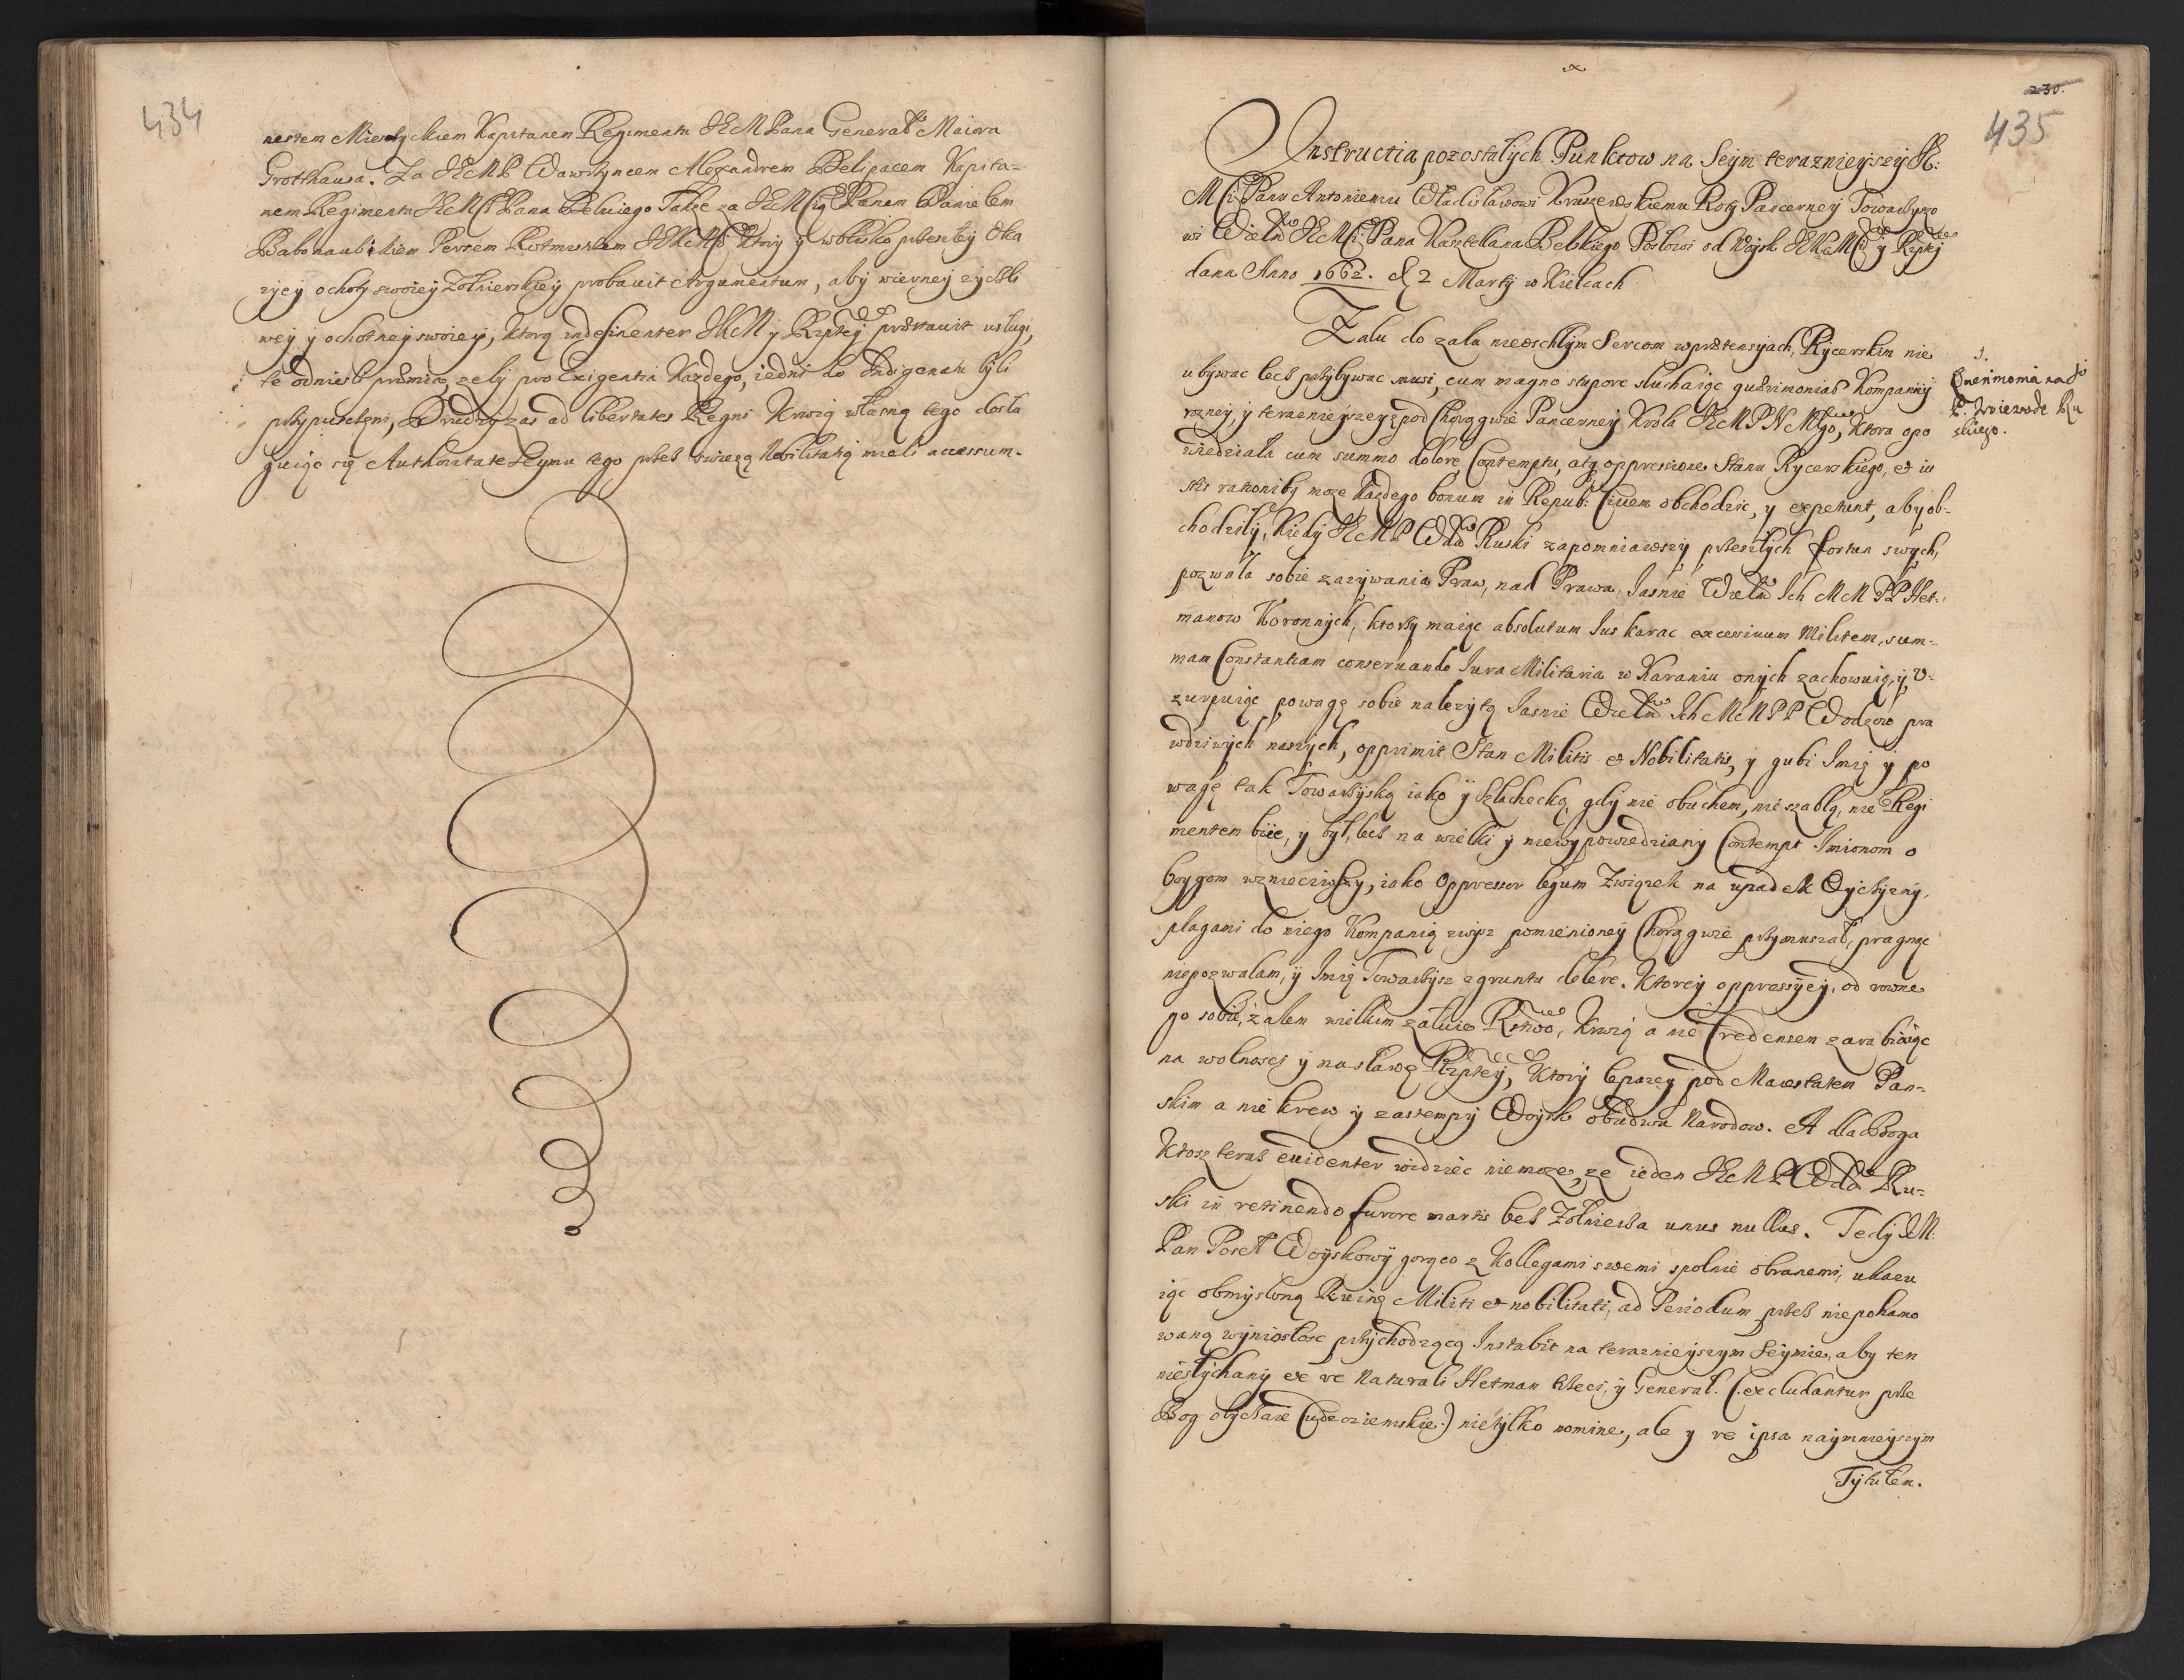 434
nestem Miesyckiem Kapitanem Regimentu JEM Pana Generał Maiora
Grotthausa. Za JEMP Wawrzyncem Alexandrem Pelipacem Kapita-
nem Regimentu JKM Pana Belskiego Także za JEMścią Panem Danielem
Babonaubikiem Persem Rotmistrzem JKMści Ktory y wblisko przeszłey Oka
zyey ochoty swoiey Zołnierskiey probavit Argumentum, aby wierney zycżli
wey y ochotney swoiey, ktorą indesinenter JKM y Rzptey præstauit usługi,
te odnieśli præmia, zeby pro Exigentia Kazdego, iedni do Indigenatu byli
przypuszczeni, Drudzy zas ad libertates Regni Krwią własną tego dosłu
guiąc się Authoritate Seymu tego przez swiezą Nobilitatią mieli accessum.
230.
435
Instructia pozostałych Punktow na Seym teraznieyszy Je:
Mści Panu Antoniemu Władisławowi Kruszewskiemu Roty Pancerney Towarzyszo
wi Wielm JEMści Pana Kasztellana Belskiego Posłowi od Woysk JKMści y Rzptey
dana Anno 1662. d 2 Martij w Kielcach
Zalu do zalu nieoschłym Sercom w prætensyach Rycerskim nie
ubywac lecż przybywac musi, cum magno stupore słuchaiąc quærimonias Kompaniey
rozney, y teraznieyszey z pod Chorągwie Pancerney Krola JEMPNMgo, ktora opo
wiedziała cum summo dolore Contemptu, atq oppressione Stanu Rycerskiego, et iu
stis rationibg moze kazdego bonum in Repub: Ciuem obchodzic, y expetunt, aby ob-
chodziły, Kiedy JEMP Wda Ruski zapomniawszy przeszłych fortun swych,
pozwala sobie zazywania Praw, nad Prawa Jasnie Wielm Ich MM PP Het-
manow Koronnych, ktorzy maiąc absolutum Ius karac excessiuum Militem, sum-
mam Constantiam conseruando Iura Militaria w Karaniu onych zachowuią, y V-
zurpuiąc powagę sobie nalezytą Jasnie Wielm Ich MM PP Wodzow pra
wdziwych naszych, opprimit Stan Militis et Nobilitatis, y gubi Imię y po
wagę tak Towarzyską iako y Szlachecką, gdy nie obuchem, nie szablą, nie Regi
mentem biie, y był, lecż na wielki y niewypowiedziany Contempt Imionom o
boygom wznieciwszy, iako Oppressor legum Związek na upadek Oyczyzny,
plagami do niego Kompanią zwysz pomienioney Chorągwie przymuszał, pragnąc
niepozwalam, y Imię Towarzysz z gruntu delere. Ktorey oppressyey, od rowne
go sobie, z alem wielkim załuie Rstwo, Krwią a nie Credensem zarabiaiąc
na wolnosci y na sławę Rzptey, Ktory lepszey pod Maiestatem Pan-
skim a nie krew y zastempy Woysk obudwu Narodow. A dla Boga
Ktosz teraz euidenter widziec niemoze, ze ieden JEMP Wda Ru-
ski in retinendo furore martis bez Zołnierza unus nullus. Tedy JM:
Pan Poseł Woyskowy gorąco z Kollegami swemi społnie obranemi, ukazu
iąc obmysloną Ruinę Militi et nobilitati, ad Periodum przez niepohamo
waną wyniosłosc przychodzącą Instabit na teraznieyszym Seymie, aby ten
niesłychany ex re Naturali Hetman trzeci, y Generał. (.excludantur prze
Bog obyczaie Cudzoziemskie.) nietylko nomine, ale y re ipsa naymnieyszym
Tytułem.
1.
Querimonia na Jo
P. Woiewodę Ru
skiego.